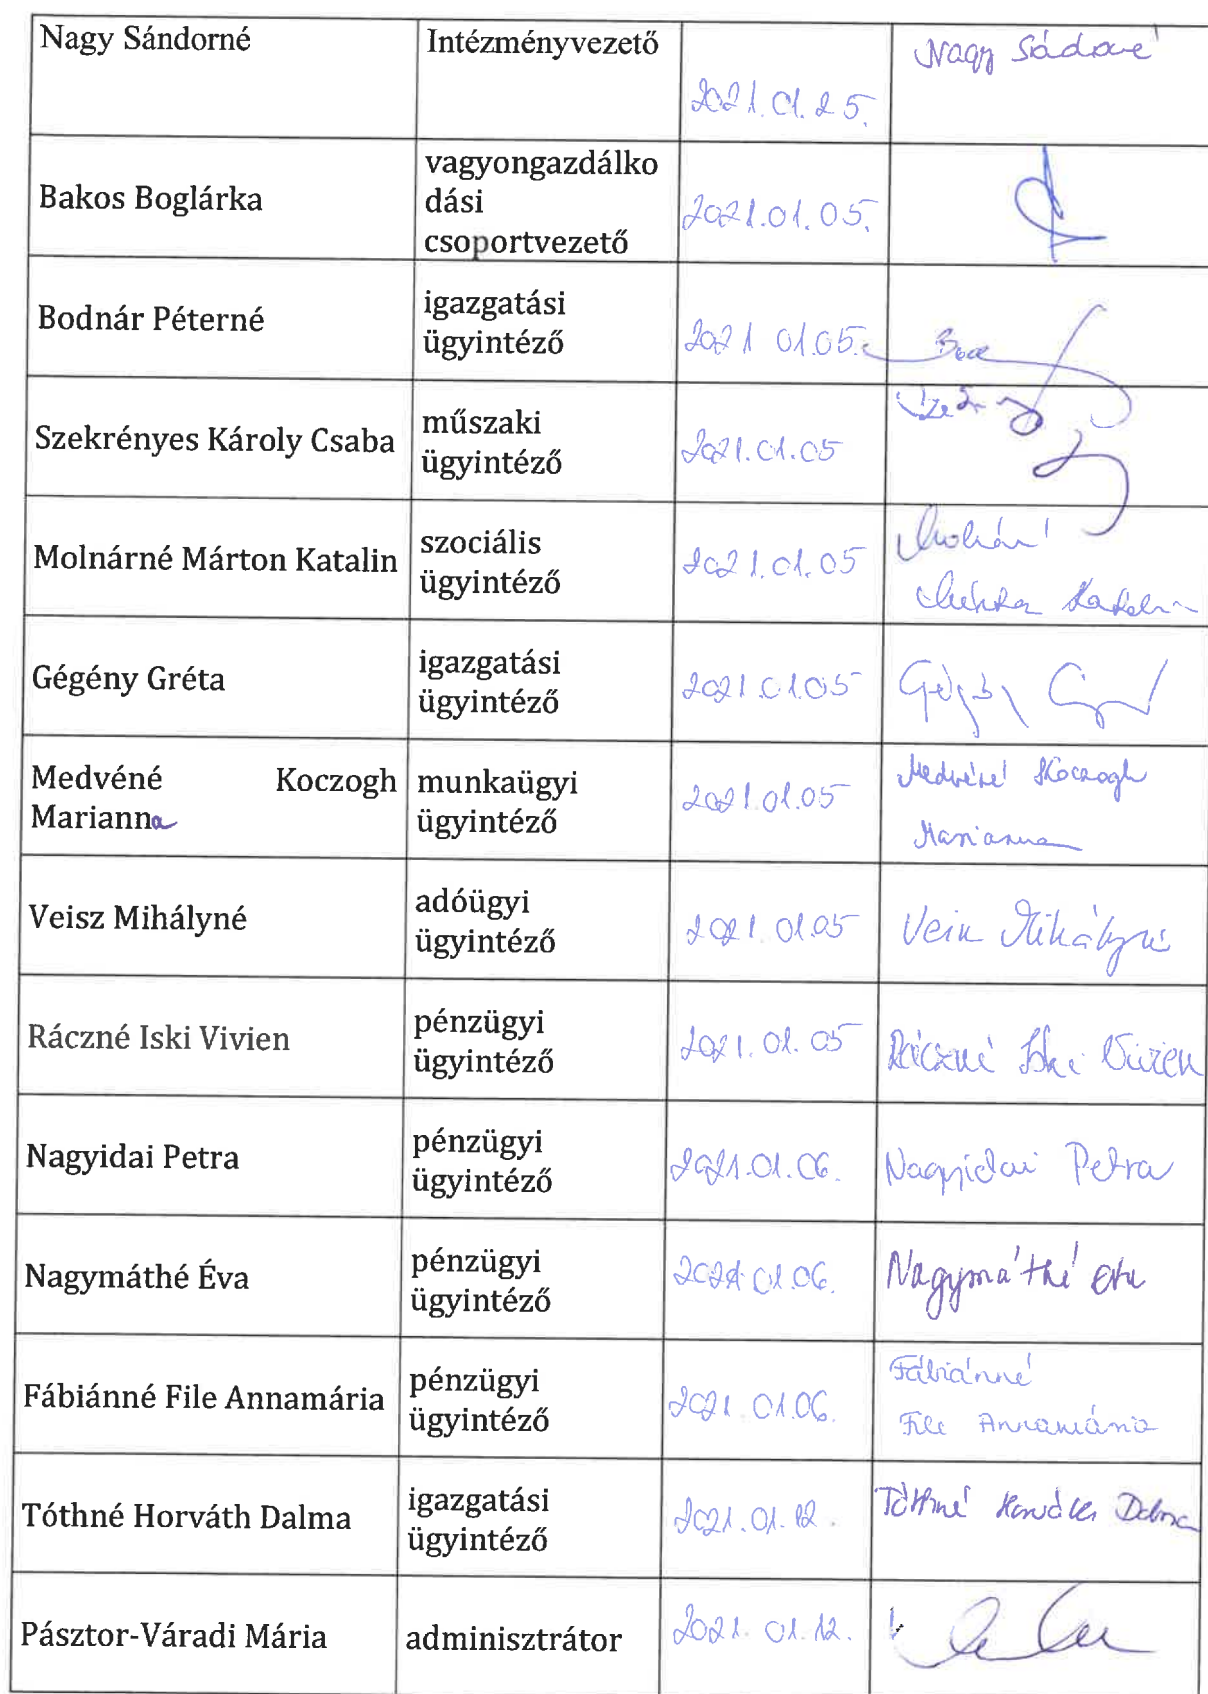 Nagy Sándorné Intézményvezető 2021.01.25. Nagy Sádorné
Bakos Boglárka vagyongazdálko
dási
csoportvezető 2021.01.05.
Bodnár Péterné igazgatási
ügyintéző 2021 01.05.
Szekrényes Károly Csaba műszaki
ügyintéző 2021.01.05
Molnárné Márton Katalin szociális
ügyintéző 2021.01.05
Gégény Gréta igazgatási
ügyintéző 2021.01.05 Gégény
Medvéné Koczogh
Marianna munkaügyi
ügyintéző 2021.01.05 Medvéné Koczogh
Marianna
Veisz Mihályné adóügyi
ügyintéző 2021.01.05 Veisz Mihályné
Ráczné Iski Vivien pénzügyi
ügyintéző 2021.01.05 Ráczné Iski Vivien
Nagyidai Petra pénzügyi
ügyintéző 2021.01.06. Nagyidai Petra
Nagymáthé Éva pénzügyi
ügyintéző 2021.01.06. Nagymáthé Éva
Fábiánné File Annamária pénzügyi
ügyintéző 2021.01.06. Fábiánné
File Annamária
Tóthné Horváth Dalma igazgatási
ügyintéző 2021.01.12. Tóthné Horváth Dalma
Pásztor-Váradi Mária adminisztrátor 2021.01.12.